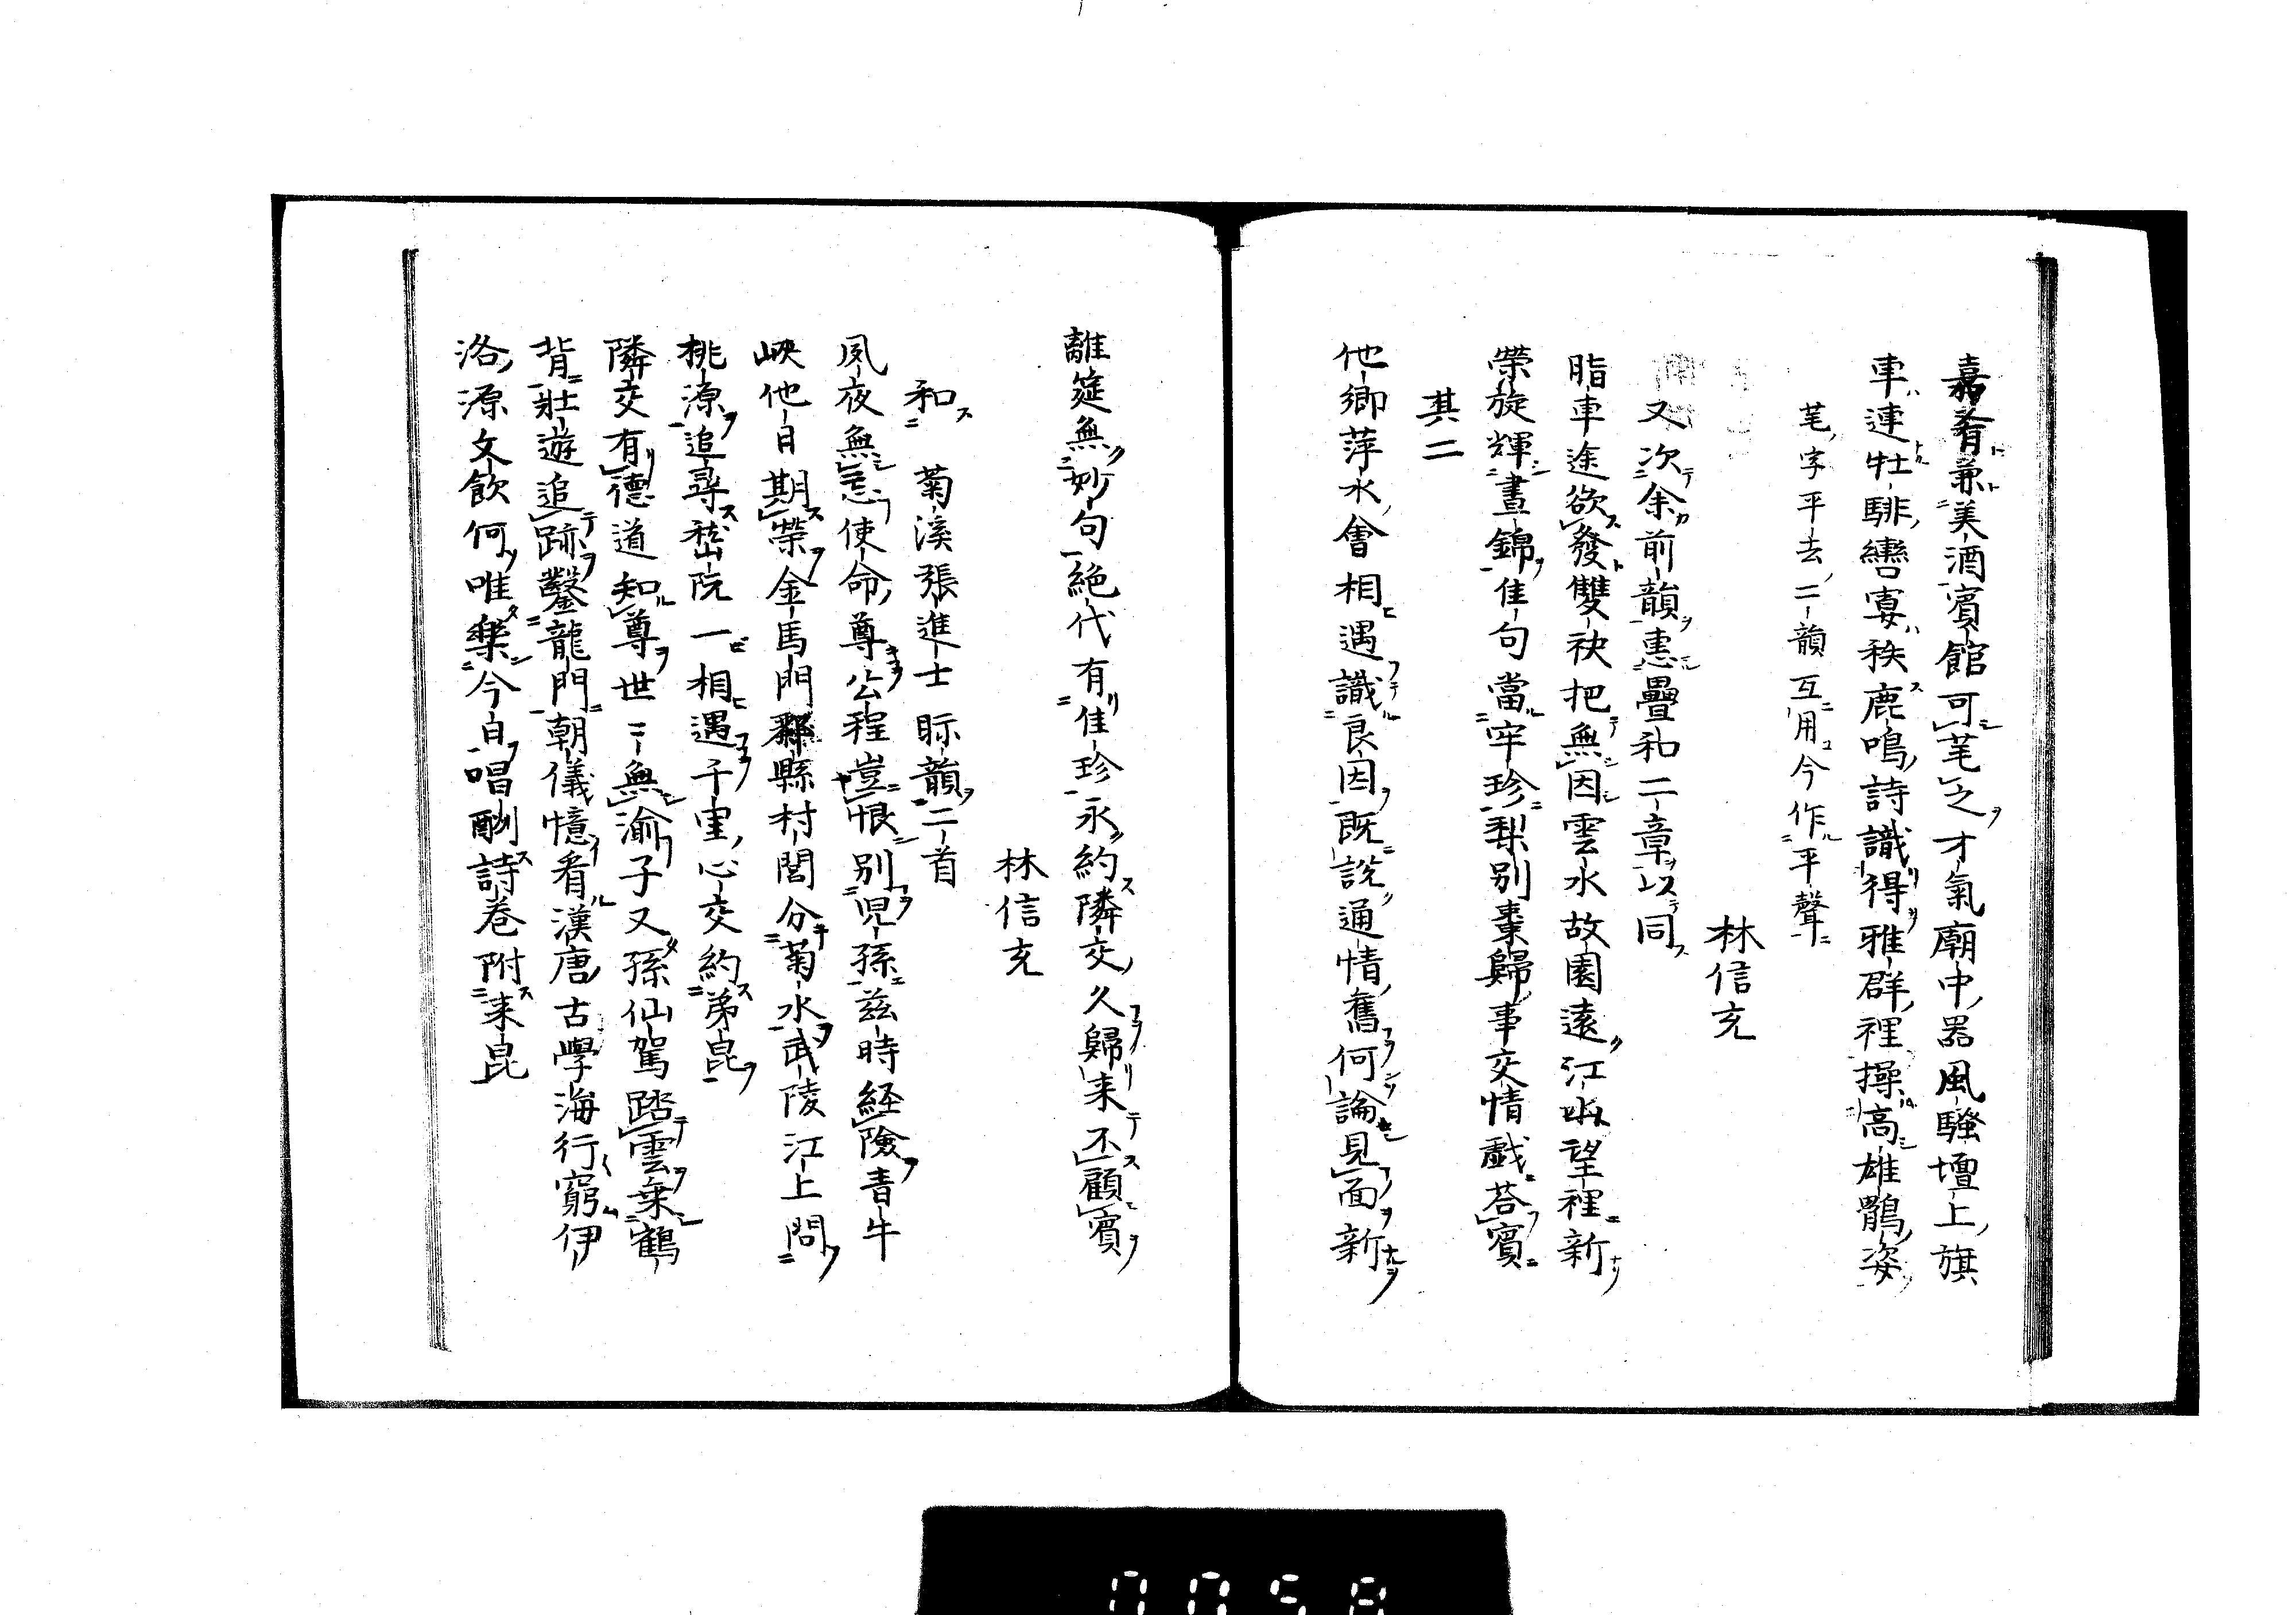 嘉肴兼美酒賓館可芼之才氣廟中器風騷壇上旗
車連牡騑轡宴秩鹿鳴詩識得雅群裡操高雄鶚姿
芼字平去二韻互用今作平聲
林信充
又次余前韻恵疊和二章以同
脂車途欲發雙袂把無因雲水故園遠江山望裡新
榮旋輝晝錦佳句當牢珍梨別棗歸事交情戯荅賓
其二
他鄉萍水會相遇識良因既說通情舊何論見面新
離筵無妙句絕代有佳珍永約隣交久歸来不顧賓
林信充
和菊溪張進士眎韻二首
夙夜無忘使命尊公程豈恨別児孫茲時経險青牛
峽他日期榮金馬門鄰縣村閭分菊水武陵江上問
桃源追尋嵇阮一相遇千里心交約弟昆
隣交有德道知尊世〻無渝子又孫仙駕踏雲乗鶴
背壯遊追跡鑿龍門朝儀憶看漢唐古學海行窮伊
洛源文飲何唯楽今日唱酬詩巻附来昆
0058